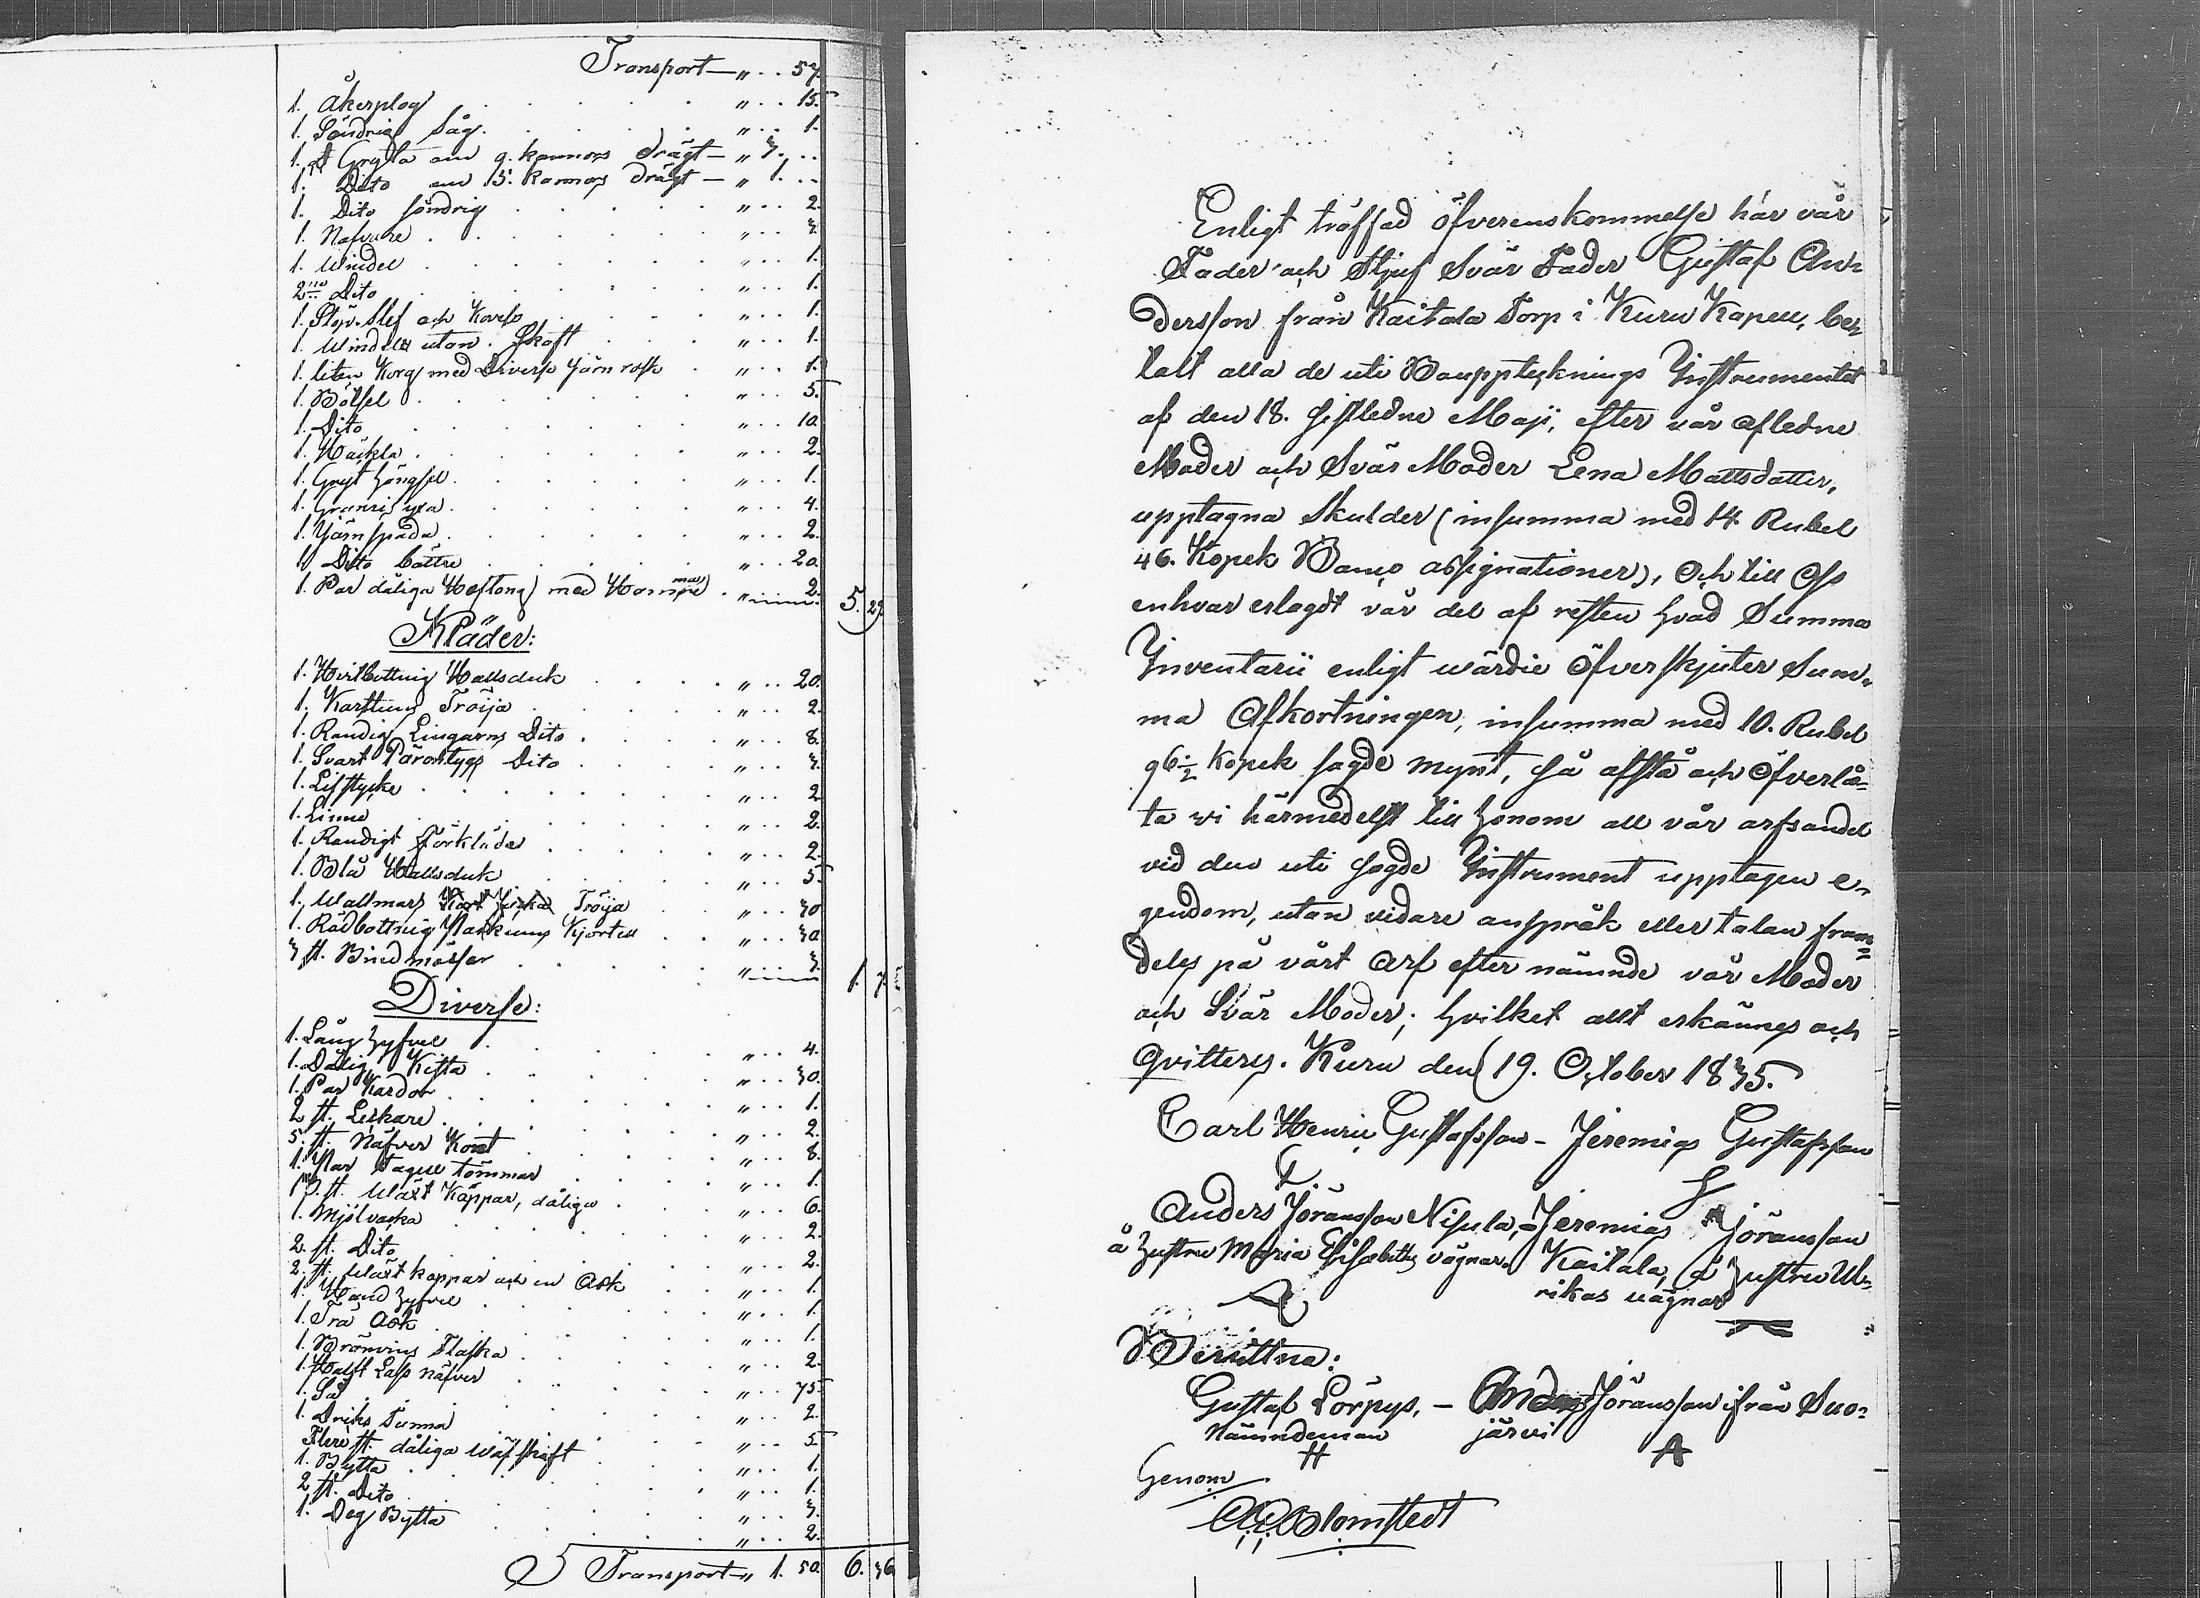 Transport — " . . 57.
1. Åkerplog . . . " . . 15.
1. Söndrig Såg . . . " . . 1.
1. st Gryta om 9. kannors drägt — " 3. . .
1. st Dito om 5. kannors drägt — " 1. . .
1. Dito söndrig . . . " . . 2.
1. Nafvare . . . " . . 3.
1. Windel . . . " . . 1.
2:ne Dito . . . " . . 1.
1. Slef och . . . " . . 1.
1. Windel utan Skaft . . . " . . 1.
1. liten Korg med Diverse Järn rask . " . . 1.
1. Bötsel . . . " . . 5.
1. Dito . . . " . . 10.
1. Häckla . . . " . . 2.
1. Gryt hängsel . . . " . . 1.
1. Granris yxa . . . " . . 4.
1. Järnspada . . . " . . 2.
1. Dito bättre . . . " . . 20.
1. Par dåliga Hoftång med . " . . 2. 5. 29.
Kläder:
1. Hvitbottnig Hallsduk . . . " . . 20.
1. Karstting Tröija . . . " . . 2.
1. Randig Lingarns Dito . . . " . . 8.
1. Svart Dito . . . " . . 3.
1. Lifstycke . . . " . . 2.
1. Linne . . . " . . 2.
1. Randigt Förkläde . . . " . . 2.
1. Blå Hallsduk . . . " . . 5.
1. Wallmars Tröija . . . " . . 30.
1. Rödbottnig Kjortell . . . " . . 30.
3 st. Bindmössor . . . " . . 3. 1. 7.
Diverse:
1. Lång hyfvel . . . " . . 4.
1. Dålig Kista . . . " . . 30.
1. Par Kardor . . . " . . 1.
2 st. Leskare . . . " . . 2.
5 st. Näfver Kont . . . " . . 8.
1. Par Tagel tömmar . . . " . . 1.
3. st. Mått Kappar, dåliga . . . " . . 6.
1. Mjölvacka . . . " . . 2.
2. st. Dito . . . " . . 2.
2. st. Mått kappar och en Ask . . . " . . 1.
1. Hand hyfvel . . . " . . 1.
1. Trä Ask . . . " . . 1.
1. Brönvins Flaska . . . " . . 2.
1. Halft Lass näfver . . . " . . 75.
1. Så . . . " . . 2.
1. Driks Tunna . . . " . . 5.
Flere st. dåliga Wäfskäft . . . " . . 1.
1. Bytta . . . " . . 1.
2 st. Dito . . . " . . 3.
1. Deg Bytta . . . " . . 2.
Transport " 1. 50. 6. 36
Enligt träffad öfverenskommelse har vår
Fader och Stjuf Svär Fader Gustaf An-
dersson från Kaitala Torp i Kuru Kapell, be-
talt alla de uti Bouppteknings Instrumentet
af den 18. sistledne Maji, efter vår afledne
Moder och Svär Moder Lena Mattsdotter,
upptagna Skulder (insumma med 14. Rubel
46. Kopek Banco assignationer), och till Oss
enhvar erlagdt vår del af resten hvad Summa
Inventarii enligt wärdie öfverskjuter Sum-
ma Afkortningen, insumma med 10. Rubel
96 1/2 Kopek sagde mynt, så afstå och öfverlå-
ta vi härmedelst till honom all vår arfsandel
vid den uti sagde Instrument upptagen e-
gendom, utan vidare anspråk eller talan fram-
deles på vårt Arf efter nämnde vår Moder
och Svär Moder; hvilket allt erkännes och
qvitteras. Kuru den 19. October 1835.
Carl Henric Gustafsson – Jeremias Gustafsson
Anders Jöransson Nisula, – Jeremias Jöransson
å hustru Maria Elisabeths vägnar. Kaitala, å hustru Ul-
rikas vägnar
Bevittna:
Gustaf Lörpys, – Anders Jöransson ifrån Suo-
Nämndeman järvi
H A
Genom
Blomstedt